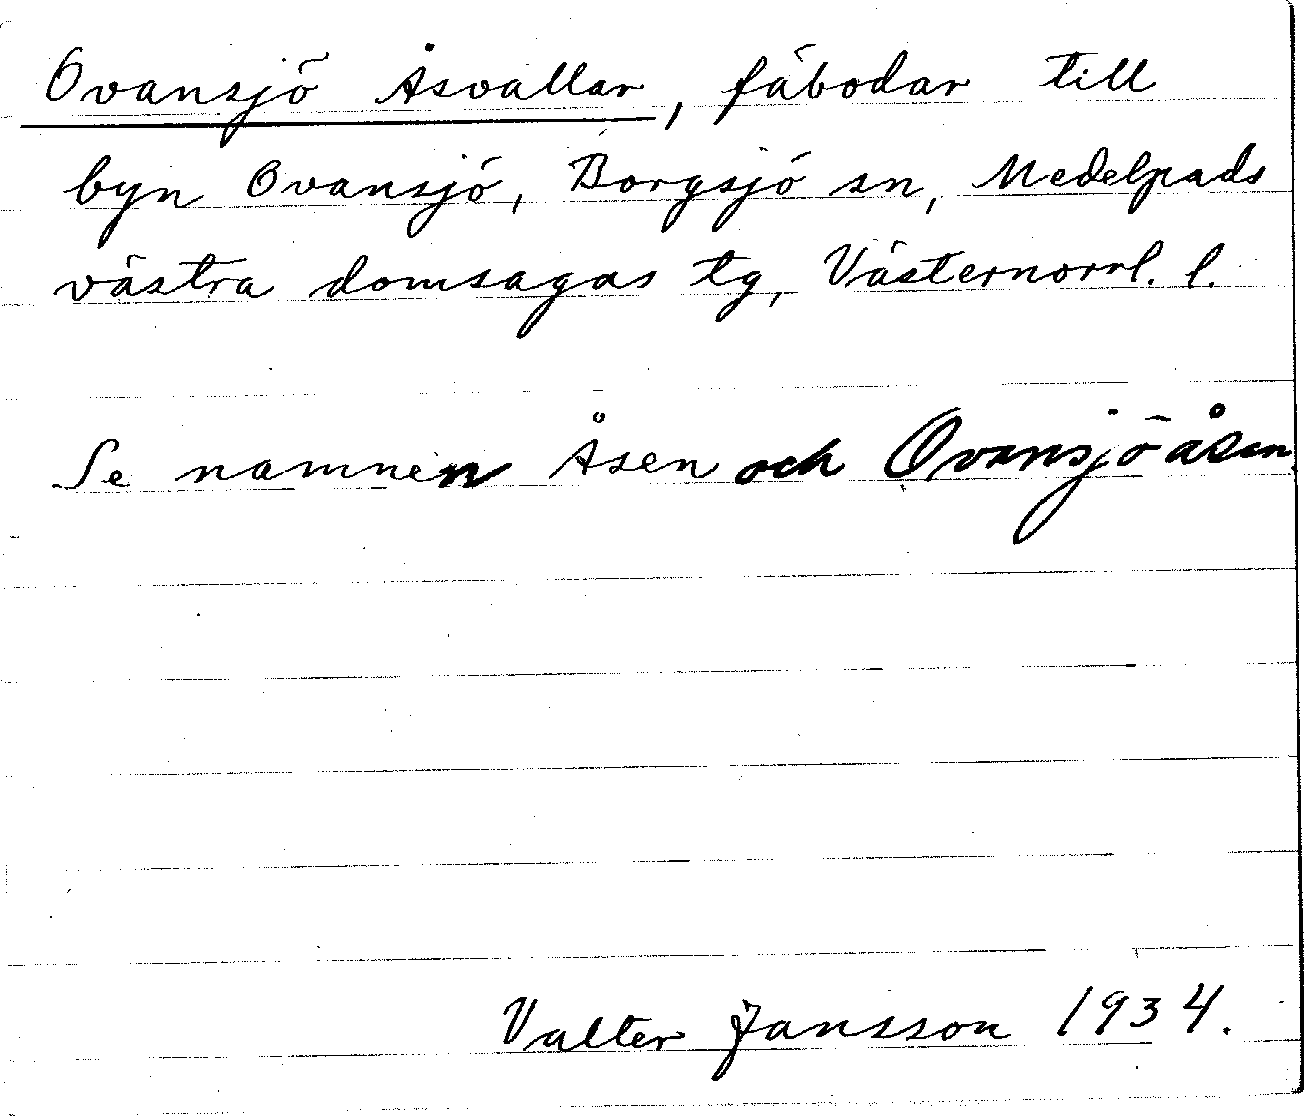 Ovansjö Åsvallar, fäbodar till
byn Ovansjö, Borgsjö sn, Medelpads
västra domsagas tg, Västernorrl. l.
Se namnen Åsen och Ovansjöåsen
Valter Jansson 1934.